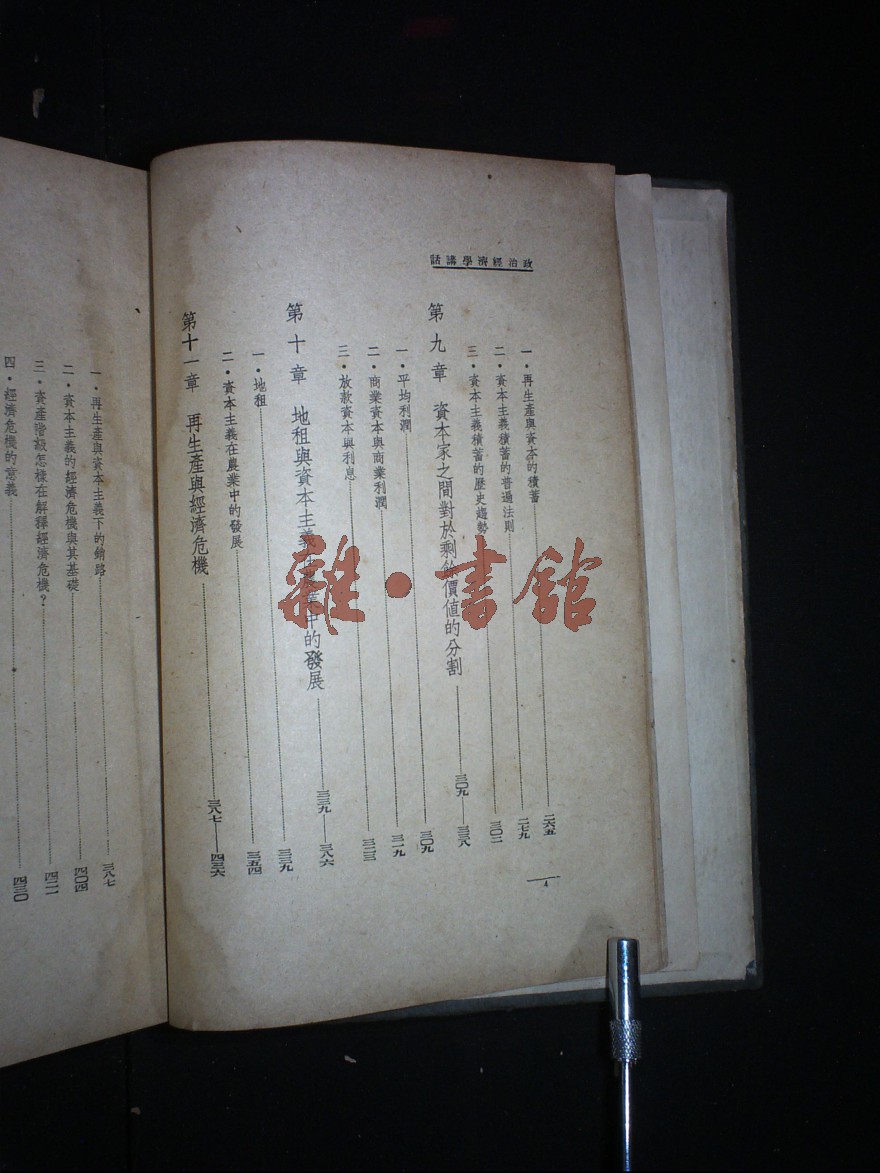 政治經濟學講話
一・再生產與資本的積蓄 二六五
二・資本主義積蓄的普遍法則 二七九
三・資本主義積蓄的歷史趨勢 三〇二
第九章 資本家之間對於剩餘價值的分割 三〇九——三三八
一・平均利潤 三〇九
二・商業資本與商業利潤 三一九
三・放款資本與利息
第十章 地租與資本主義在農業中的發展 三三九——三八六
一・地租 三三九
二・資本主義在農業中的發展 三五四
第十一章 再生產與經濟危機 三八七——四三六
4
一・再生產與資本主義下的銷路 三八七
二・資本主義的經濟危機與其基礎 四〇四
三・資產階級怎樣在解釋經濟危機？ 四二二
四・經濟危機的意義 四三〇
雜・書館